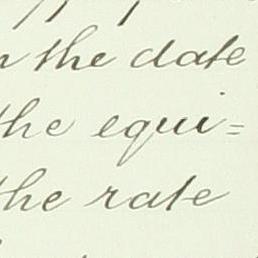 the date
the equi=
the rate